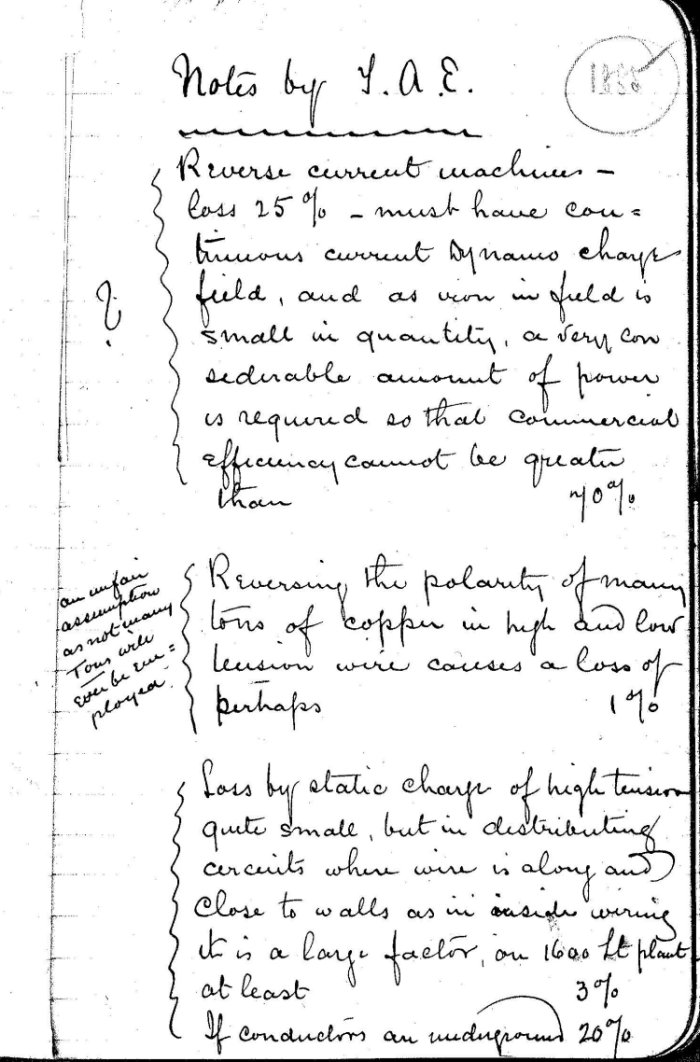 Notes by T. A. E.
1886
Reverse current machines –
loss 25% – must have con=
tinuous current Dynamo charge
field, and as iron in field is
small in quantity, a very con
siderable amount of power
is required so that commercial
efficiency cannot be greater
than 70%
?
Reversing the polarity of many
tons of copper in high and low
tension wire causes a loss of
perhaps 1%
an unfair
assumption
as not many
Tons will
ever be em=
ployed.
Loss by static charge of high tension
quite small, but in distributing
circuits where wire is along and
close to walls as in inside wiring
it is a large factor, on 1600 Lt plant
at least 3%
If conductors are underground 20%